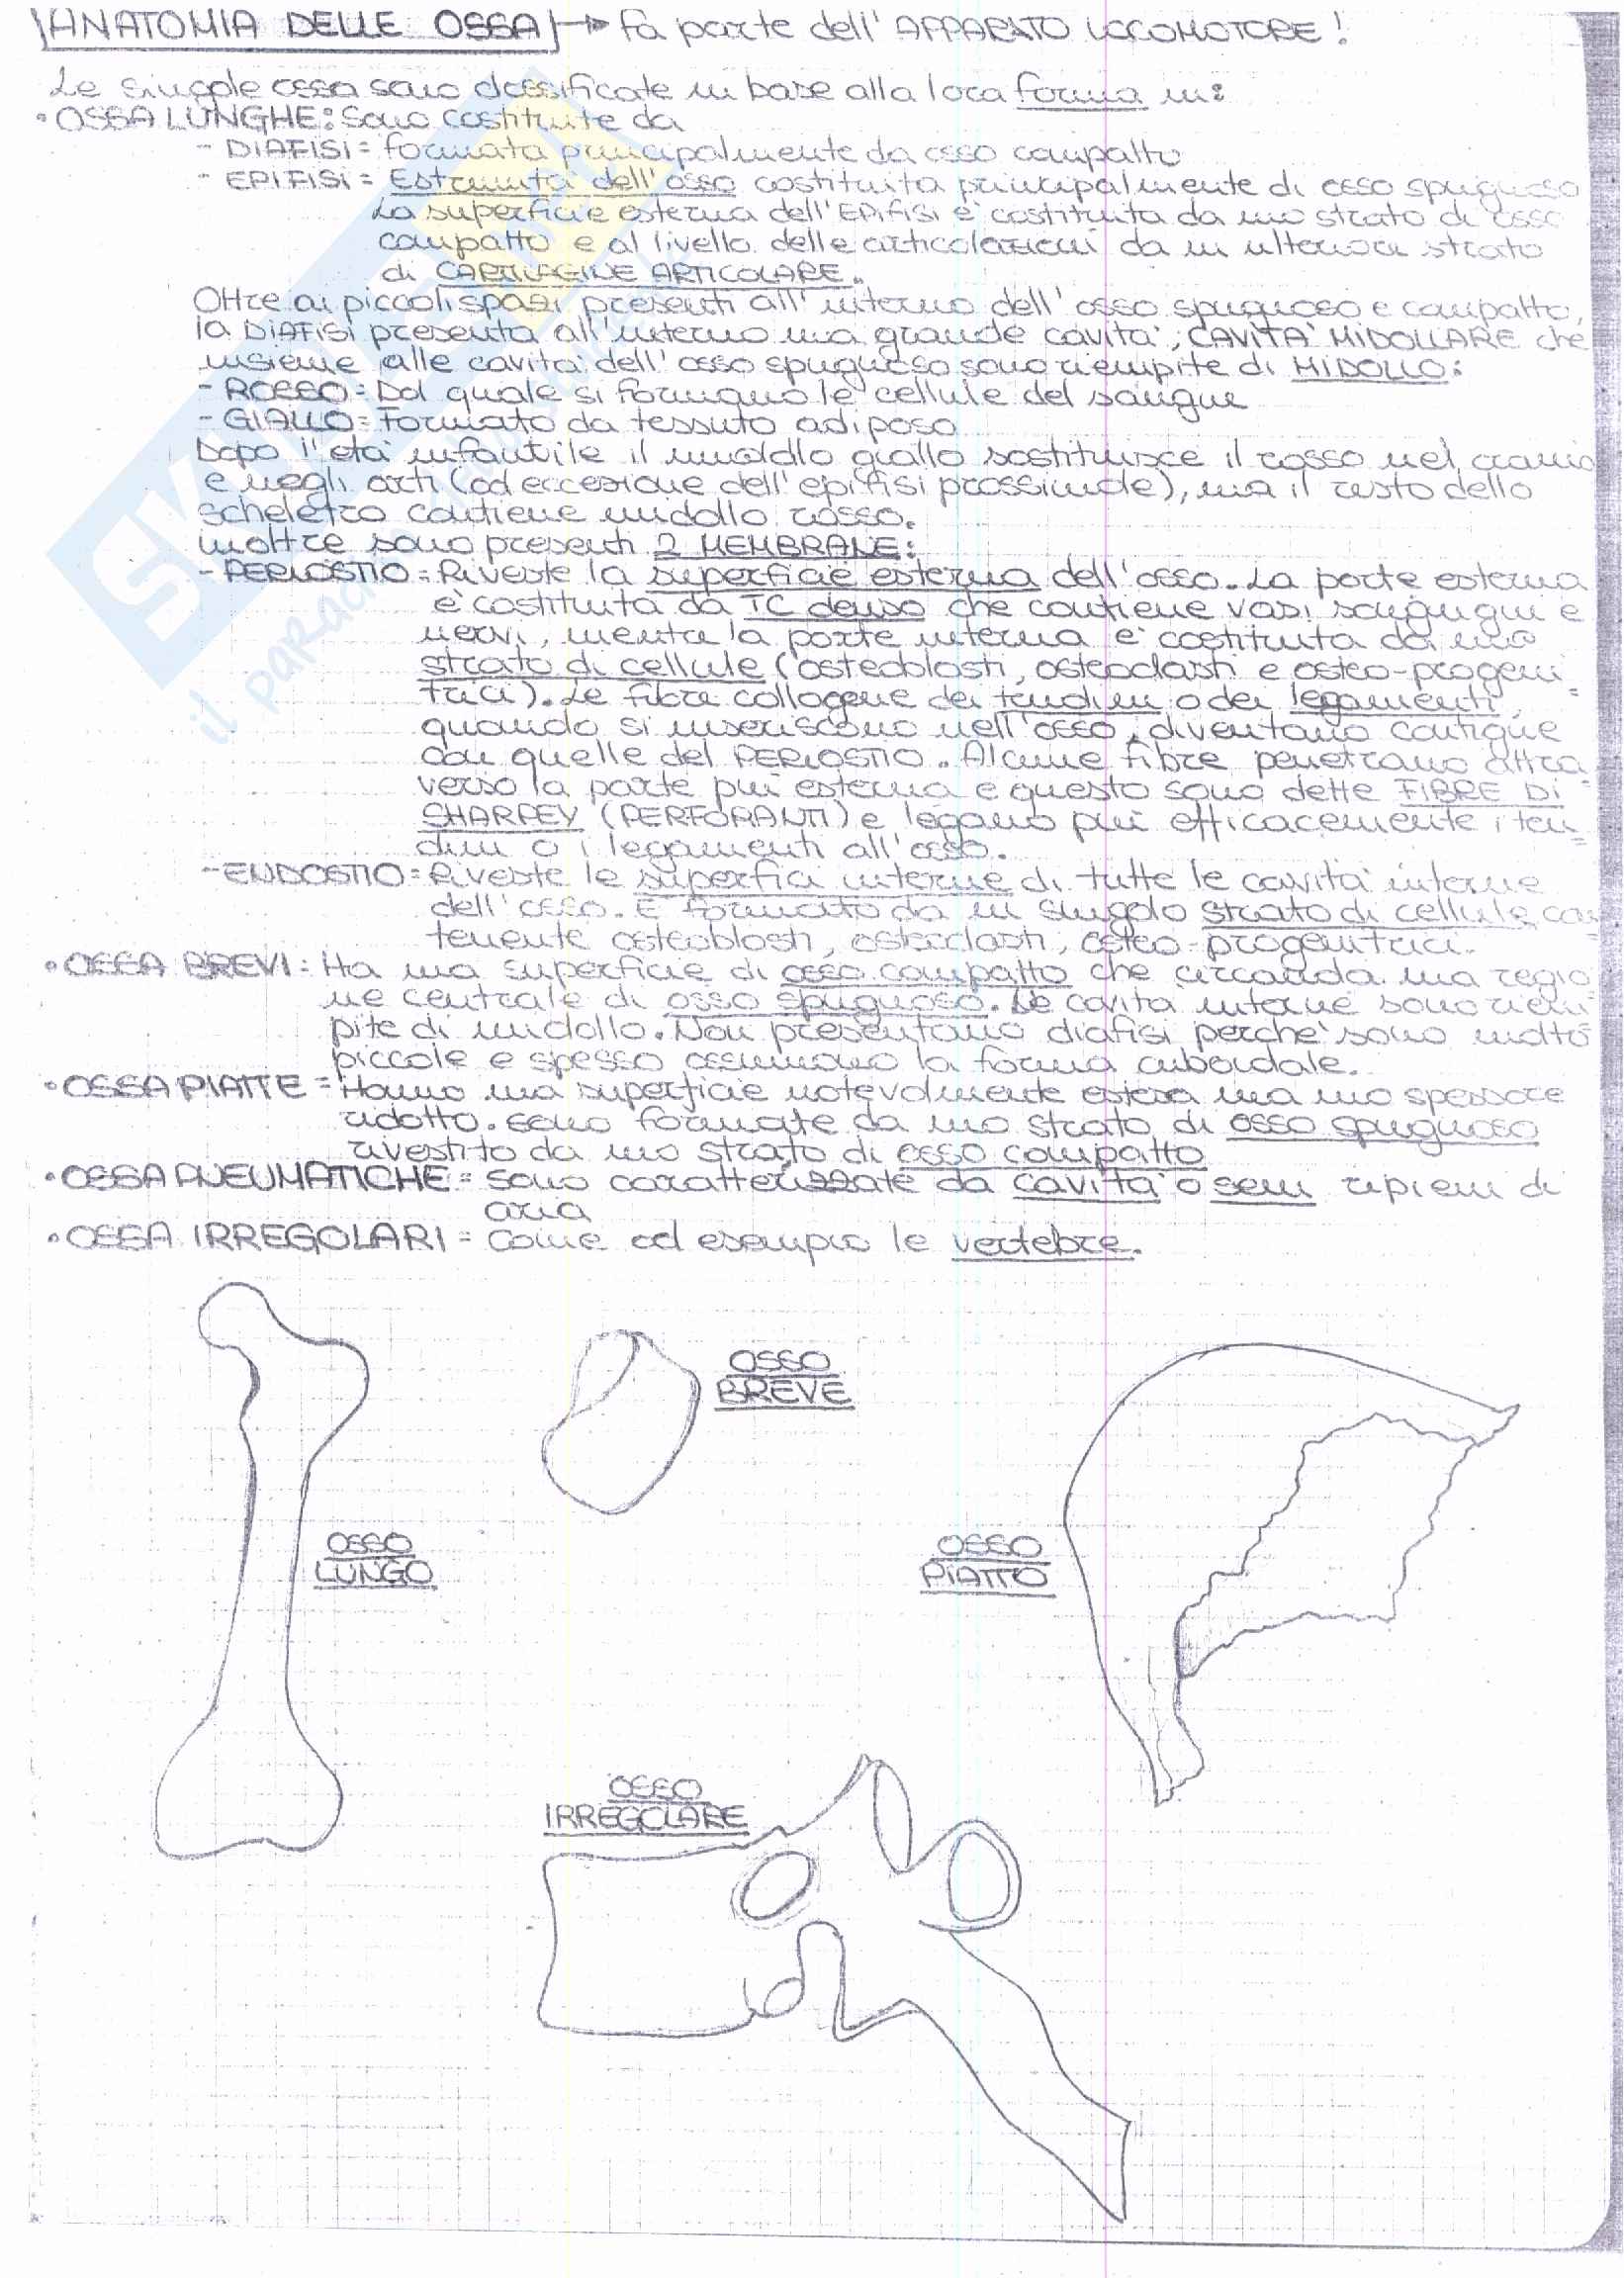 ANATOMIA DELLE OSSA → Fa parte dell'APPARATO LOCOMOTORE!
Le singole ossa sono classificate in base alla loro forma in:
• OSSA LUNGHE: Sono costituite da
- DIAFISI = formata principalmente da osso compatto
- EPIFISI = Estremità dell'osso costituita principalmente di osso spugnoso
La superficie esterna dell'EPIFISI è costituita da uno strato di osso
compatto e al livello delle articolazioni da un ulteriore strato
di CARTILAGINE ARTICOLARE.
Oltre ai piccoli spazi presenti all'interno dell'osso spugnoso e compatto,
la DIAFISI presenta all'interno una grande cavità, CAVITÀ MIDOLLARE che
insieme alle cavità dell'osso spugnoso sono riempite di MIDOLLO:
- ROSSO = Dal quale si formano le cellule del sangue
- GIALLO = Formato da tessuto adiposo
Dopo l'età infantile il midollo giallo sostituisce il rosso nel cranio
e negli arti (ad eccezione dell'epifisi prossimale), ma il resto dello
scheletro contiene midollo rosso.
Inoltre sono presenti 2 MEMBRANE:
- PERIOSTIO = Riveste la superficie esterna dell'osso. La parte esterna
è costituita da TC denso che contiene vasi sanguigni e
nervi, mentre la parte interna è costituita da uno
strato di cellule (osteoblasti, osteoclasti e osteo-progeni
trici). Le fibre collagene dei tendini o dei legamenti,
quando si inseriscono nell'osso, diventano contigue
con quelle del PERIOSTIO. Alcune fibre penetrano attra
verso la parte più esterna e questo sono dette FIBRE DI
SHARPEY (PERFORANTI) e legano più efficacemente i ten
dini o i legamenti all'osso.
- ENDOSTIO = Riveste le superfici interne di tutte le cavità interne
dell'osso. È formato da un singolo strato di cellule con
tenente osteoblasti, osteoclasti, osteo-progenitrici.
• OSSA BREVI: Ha una superficie di osso compatto che circonda una regio
ne centrale di osso spugnoso. Le cavità interne sono riem
pite di midollo. Non presentano diafisi perchè sono molto
piccole e spesso assumono la forma cuboidale.
• OSSA PIATTE = Hanno una superficie notevolmente estesa ma uno spessore
ridotto. Sono formate da uno strato di osso spugnoso
rivestito da uno strato di osso compatto
• OSSA PNEUMATICHE = Sono caratterizzate da cavità o seni ripieni di
aria
• OSSA IRREGOLARI = Come ad esempio le vertebre.
OSSO
BREVE
OSSO
LUNGO
OSSO
PIATTO
OSSO
IRREGOLARE